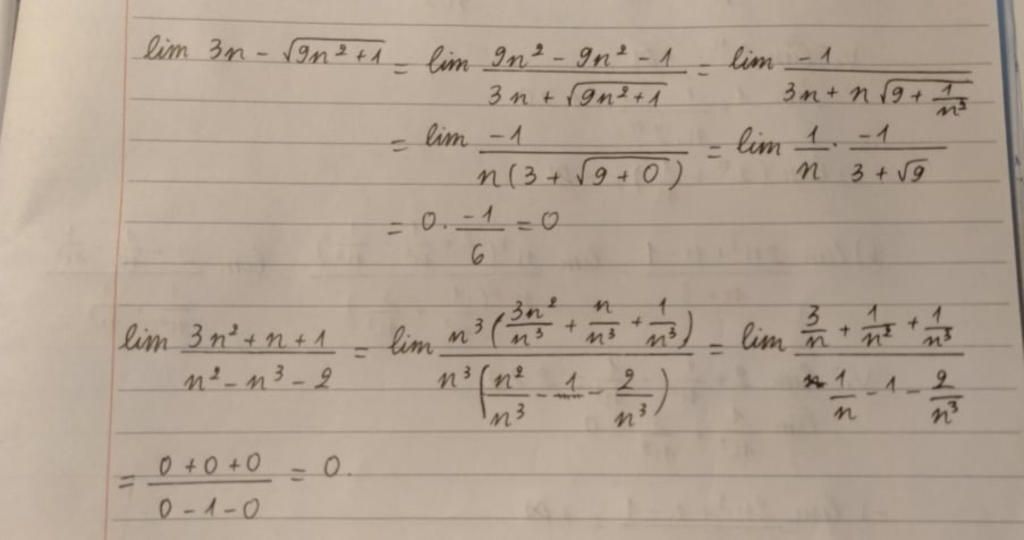 lim 3n - √(9n² + 1) = lim (9n² - 9n² - 1)/(3n + √(9n² + 1)) = lim (-1)/(3n + n√(9 + 1/n³))
= lim (-1)/(n(3 + √(9 + 0))) = lim 1/n · (-1)/(3 + √9)
= 0 · (-1)/6 = 0
lim (3n² + n + 1)/(n² - n³ - 2) = lim (n³(3n²/n³ + n/n³ + 1/n³))/(n³(n²/n³ - 1 - 2/n³)) = lim (3/n + 1/n² + 1/n³)/(1/n - 1 - 2/n³)
= (0 + 0 + 0)/(0 - 1 - 0) = 0.